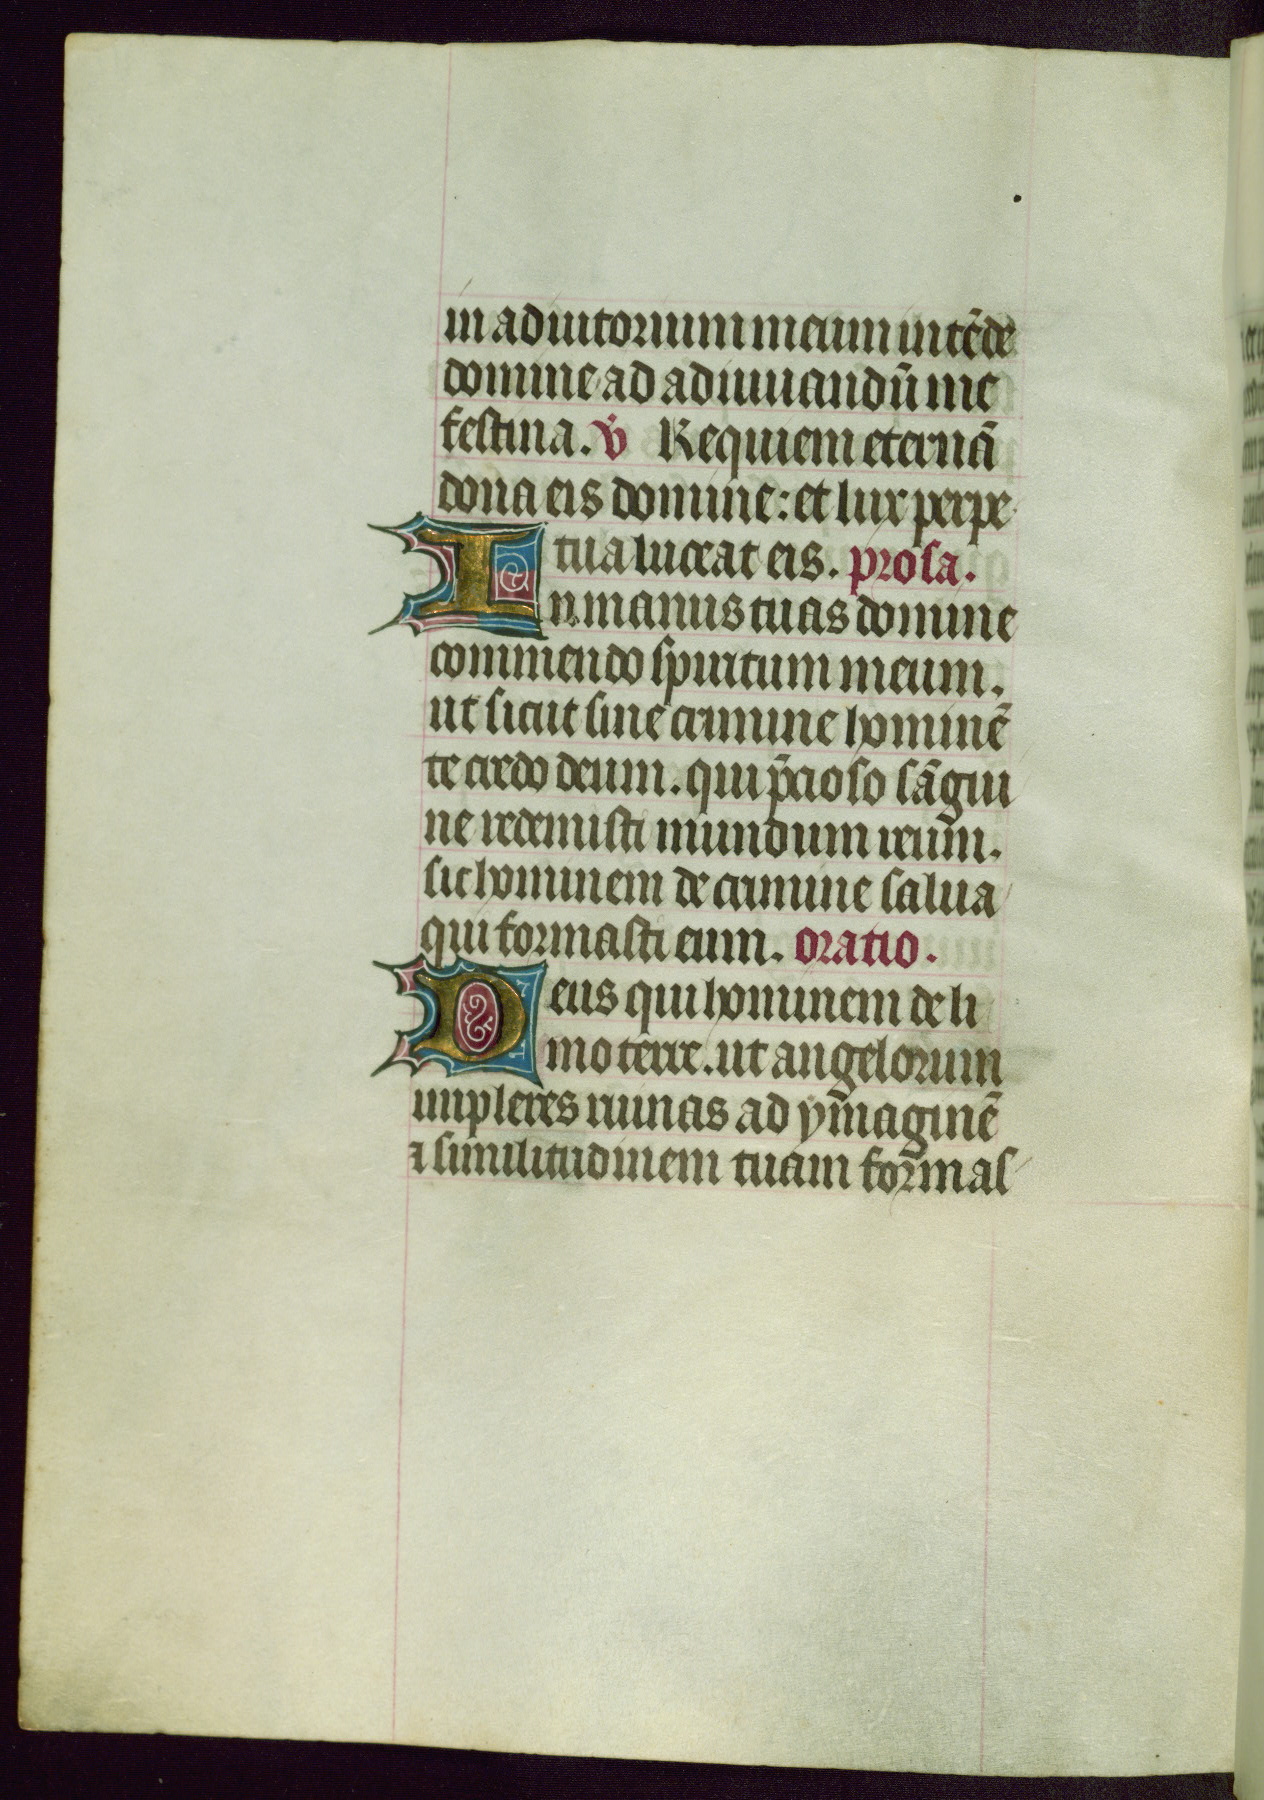 in adiutorium meum intẽde
domine ad adiuuandũ me
festina. v̇ Requiem eternã
dona eis domine: et lux perpe
tua luceat eis. prosa.
In manus tuas domine
commendo spiritum meum.
ut sicut sine crimine hominẽ
te credo deum. qui p̃cioso sãgui
ne redemisti mundum reum.
sic hominem de crimine salua
qui formasti eum. oratio.
Deus qui hominem de li
mo terre. ut angelorum
impleres ruinas ad ymaginẽ
⁊ similitudinem tuam formas